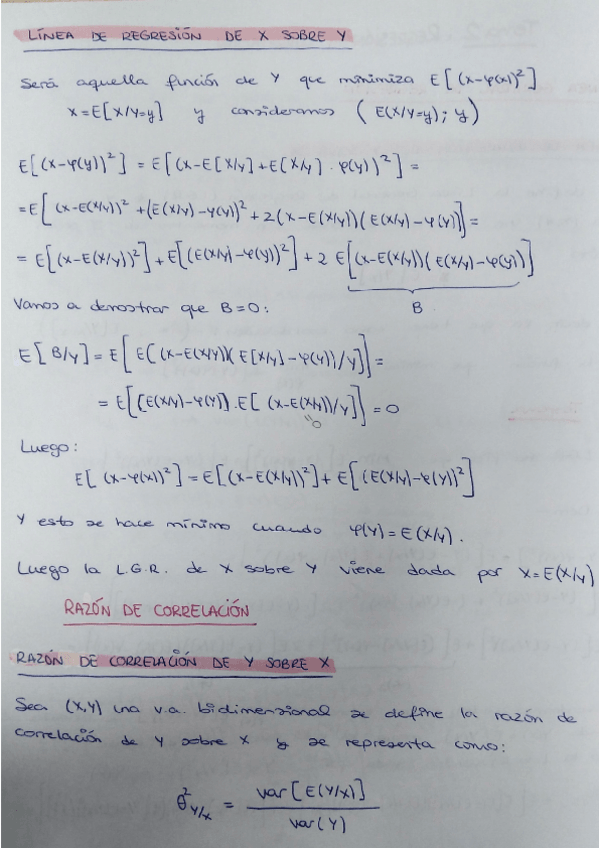 LÍNEA DE REGRESIÓN DE X SOBRE Y
Será aquella función de Y que minimiza E[(x-φ(x))²]
x=E[X/Y=y] y consideramos (E(X/Y=y); y)
E[(x-φ(y))²] = E[(x-E[X/y]+E[X/y] . φ(y))²] =
=E[(x-E(X/y))² + (E(X/y)-φ(y))² + 2(x-E(X/y))(E(X/y)-φ(y))] =
= E[(x-E(X/y))²] + E[(E(X/y)-φ(y))²] + 2 E[(x-E(X/y))(E(X/y)-φ(y))]
B
Vamos a demostrar que B=0:
E[B/y] = E[E((x-E(X/Y))(E[X/y]-φ(y))/y)] =
= E[(E(X/y)-φ(y)).E[(x-E(X/y))/y]] = 0
"0
Luego:
E[(x-φ(x))²] = E[(x-E(X/y))²] + E[(E(X/y)-φ(y))²]
Y esto se hace mínimo cuando φ(y) = E(X/y).
Luego la L.G.R. de X sobre Y viene dada por x=E(X/y)
RAZÓN DE CORRELACIÓN
RAZÓN DE CORRELACIÓN DE Y SOBRE X
Sea (X,Y) una v.a. bidimensional se define la razón de
correlación de Y sobre X y se representa como:
θ²Y/x = var[E(Y/x)] / var(Y)